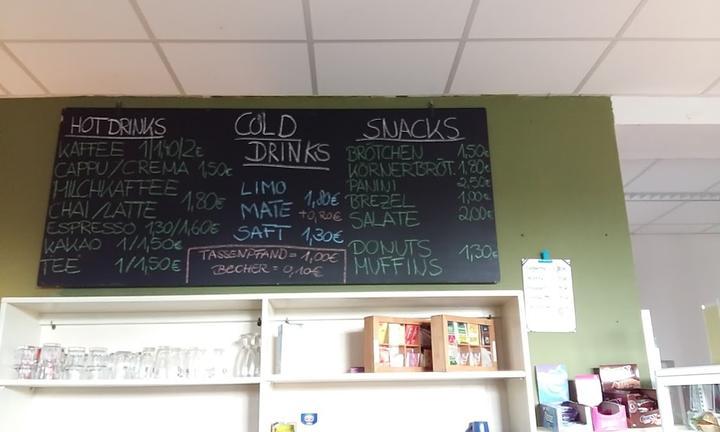 HOT DRINKS
KAFFEE 1/1,40/2€
CAPPU/CREMA 1,50€
MILCHKAFFEE
CHAI/LATTE 1,80€
ESPRESSO 1,30/1,60€
KAKAO 1/1,50€
TEE 1/1,50€
COLD
DRINKS
LIMO 1,80€
MATE +0,20€
SAFT 1,30€
TASSENPFAND = 1,00€
BECHER = 0,10€
SNACKS
BRÖTCHEN 1,50€
KÖRNERBRÖT. 1,80€
PANINI 2,50€
BREZEL 1,00€
SALATE 2,00€
DONUTS 1,30€
MUFFINS